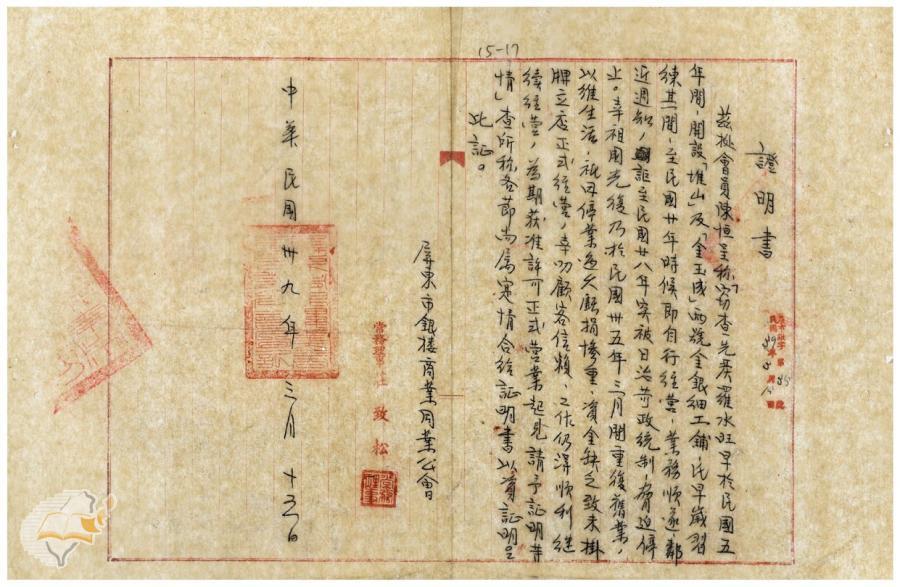 15-17
證明書
茲據會員陳恒呈称「窃查先夫羅水旺早於民國五
年間,開設「堆山」及「金玉成」兩號金銀細工鋪,氏早歲習
練其間,至民國廿年時候即自行經營,業務順遂,鄰
近週知,詎至民國廿八年突被日治苛政統制,脅迫停
止。幸祖國光復乃於民國卅五年三月間重復舊業,
以維生活,祇因停業過久虧損慘重,資金缺乏致未掛
牌立店正式經營,幸叨顧客信賴、工作仍得順利継
续経營,為期获准許可正式营業起見請予証明等
情」查所称各節尚属寔情合給証明書以資証明
此証。
屏東市銀樓商業同業公會
常務理事 莊 致 松
中華民國卅九年三月十五日